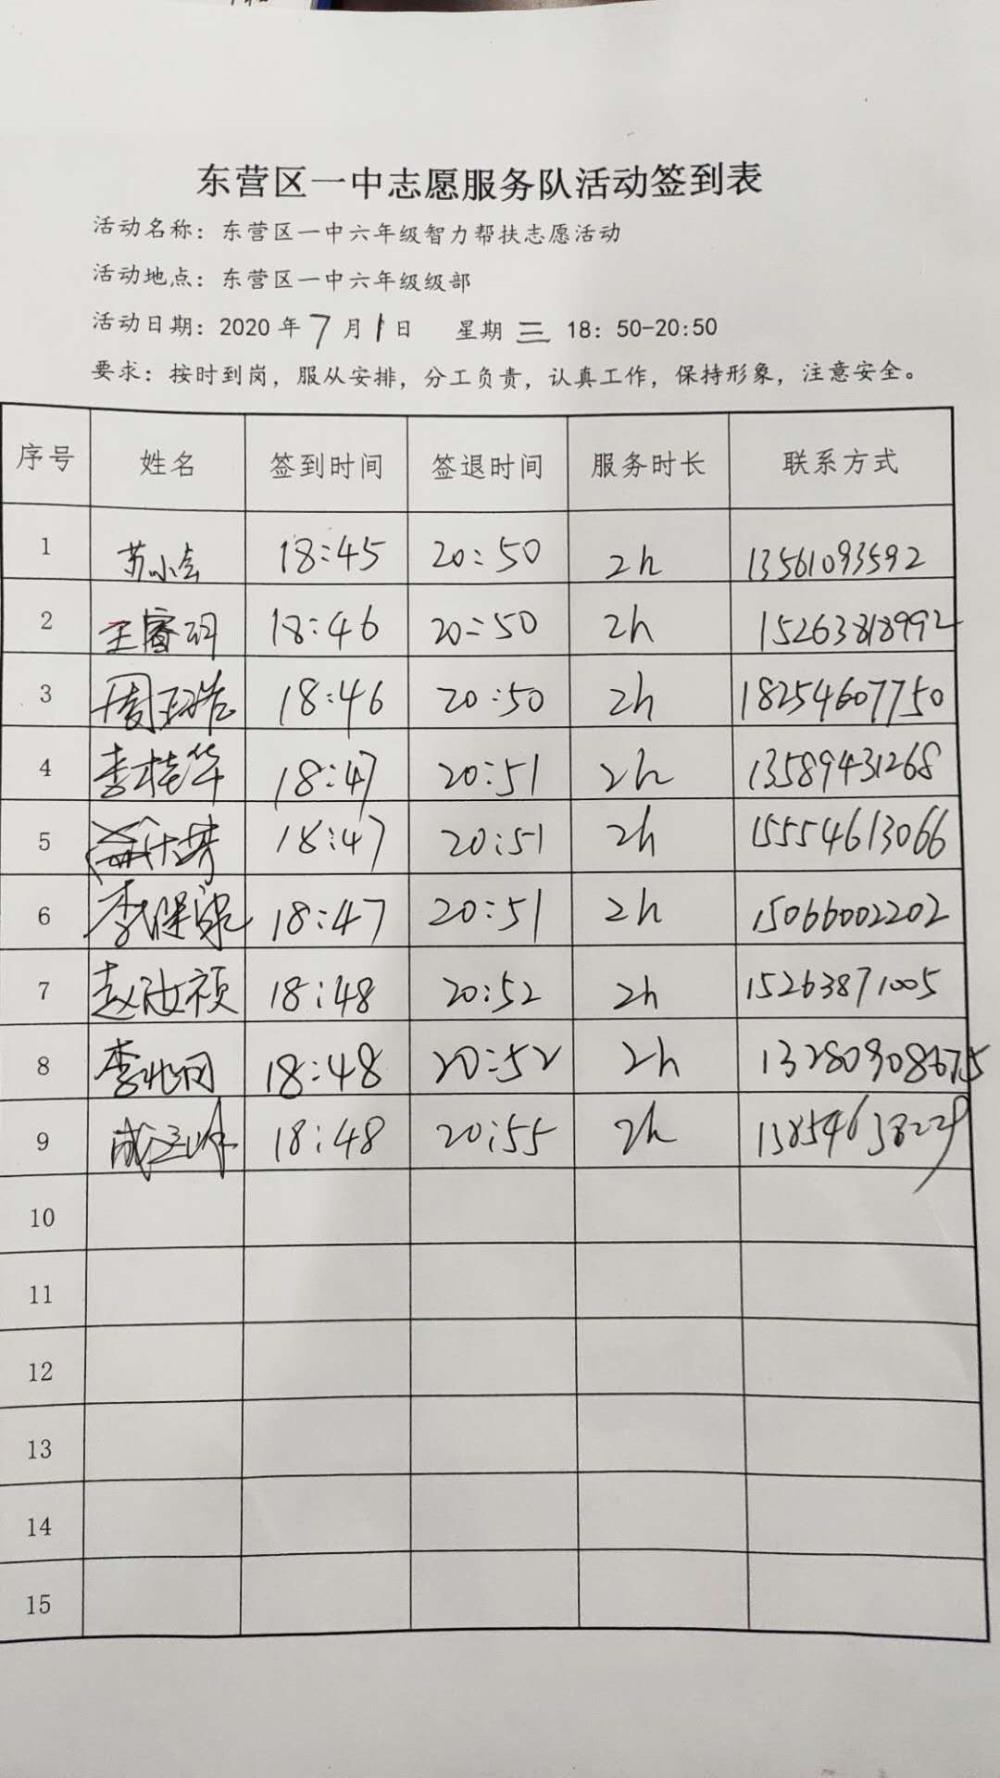 东营区一中志愿服务队活动签到表
活动名称：东营区一中六年级智力帮扶志愿活动
活动地点：东营区一中六年级级部
活动日期：2020 年 7 月 1 日 星期 三 18：50-20:50
要求：按时到岗，服从安排，分工负责，认真工作，保持形象，注意安全。
序号 姓名 签到时间 签退时间 服务时长 联系方式
1 苏小会 18:45 20:50 2h 13561093592
2 王睿珂 18:46 20:50 2h 15263818992
3 周 18:46 20:50 2h 18254607750
4 李桂华 18:47 20:51 2h 13589431268
5 18:47 20:51 2h 15554613066
6 李 18:47 20:51 2h 15066002202
7 赵汝祯 18:48 20:52 2h 15263871005
8 李兆同 18:48 20:52 2h 13280908675
9 成 18:48 20:55 2h 13854638229
10
11
12
13
14
15